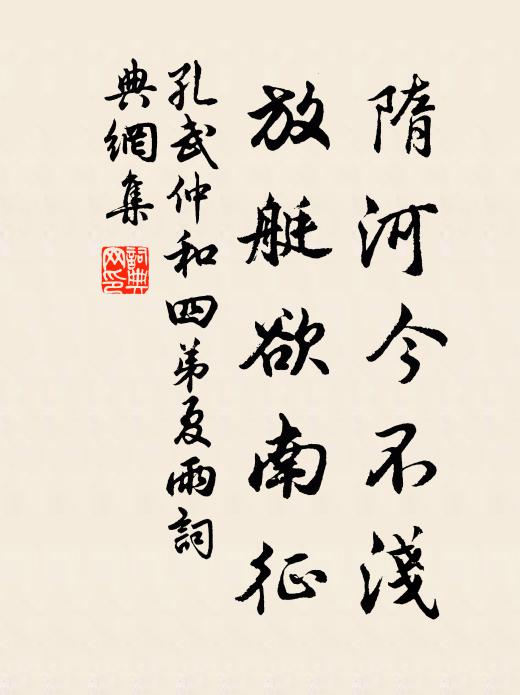 隋河今不淺
放艇欲南征
孔武仲和四弟夏雨詞
典網集
詞典
网印